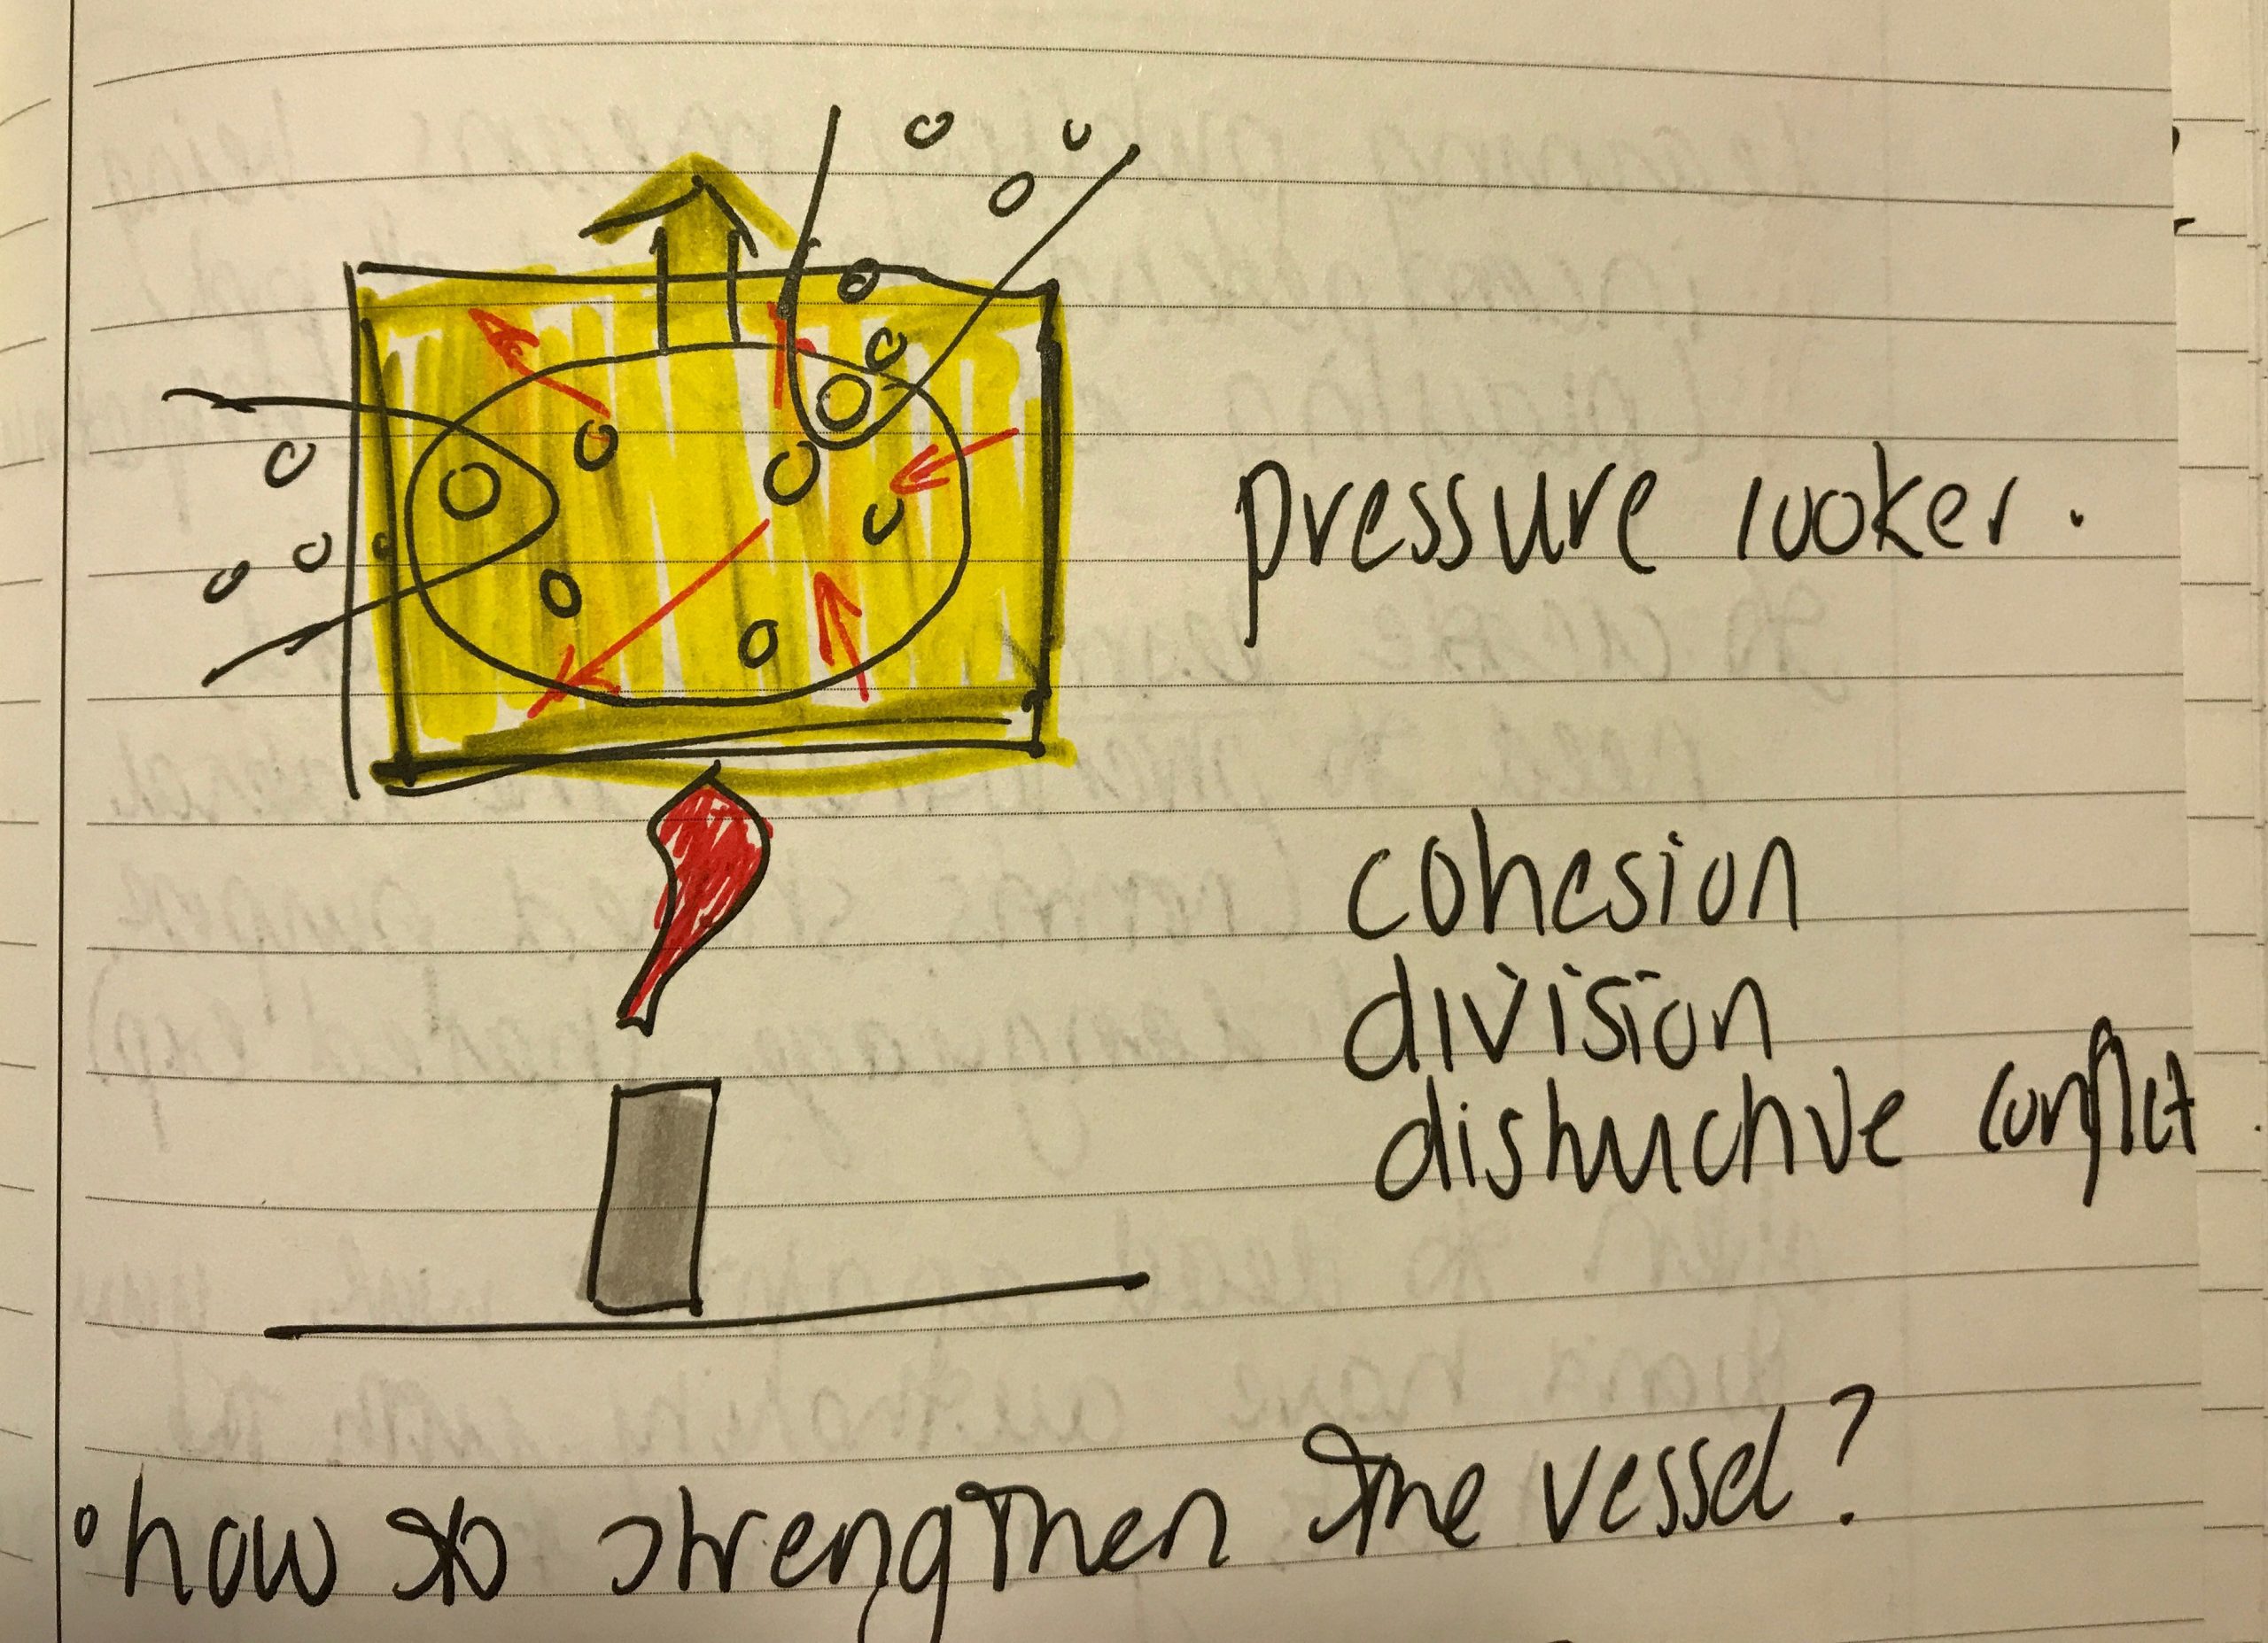 pressure cooker.
cohesion
division
distructive conflict.
how to strengthen the vessel?